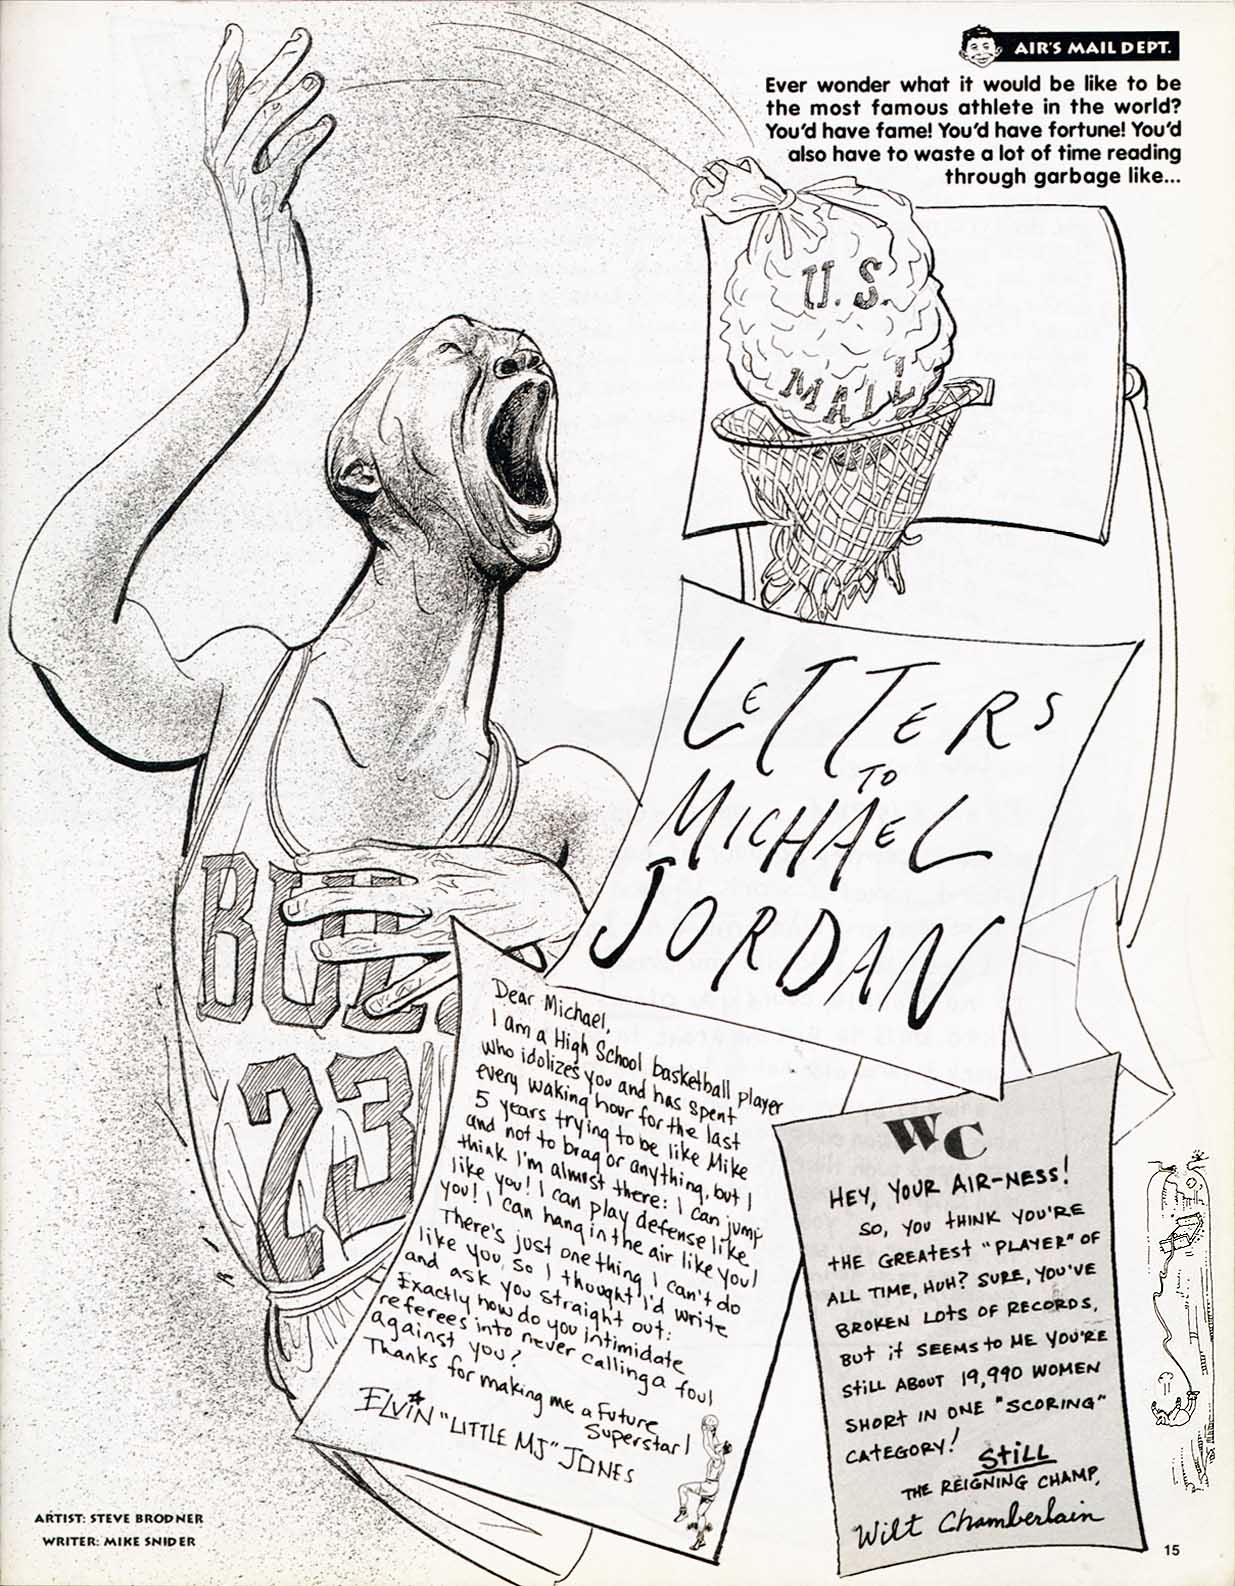 AIR'S MAIL DEPT.
Ever wonder what it would be like to be
the most famous athlete in the world?
You'd have fame! You'd have fortune! You'd
also have to waste a lot of time reading
through garbage like...
U.S.
MAIL
LETTERS
TO
MICHAEL
JORDAN
BULL
23
Dear Michael,
I am a High School basketball player
who idolizes you and has spent
every waking hour for the last
5 years trying to be like Mike
and not to brag or anything, but I
think I'm almost there: I can jump
like you! I can play defense like
you! I can hang in the air like you!
There's just one thing I can't do
like you, so I thought I'd write
and ask you straight out:
Exactly how do you intimidate
referees into never calling a foul
against you?
Thanks for making me a future
Superstar!
ELVIN "LITTLE MJ" JONES
WC
HEY, YOUR AIR-NESS!
SO, YOU THINK YOU'RE
THE GREATEST "PLAYER" OF
ALL TIME, HUH? SURE, YOU'VE
BROKEN LOTS OF RECORDS,
BUT IT SEEMS TO ME YOU'RE
STILL ABOUT 19,990 WOMEN
SHORT IN ONE "SCORING"
CATEGORY!
STILL
THE REIGNING CHAMP,
Wilt Chamberlain
ARTIST: STEVE BRODNER
WRITER: MIKE SNIDER
15